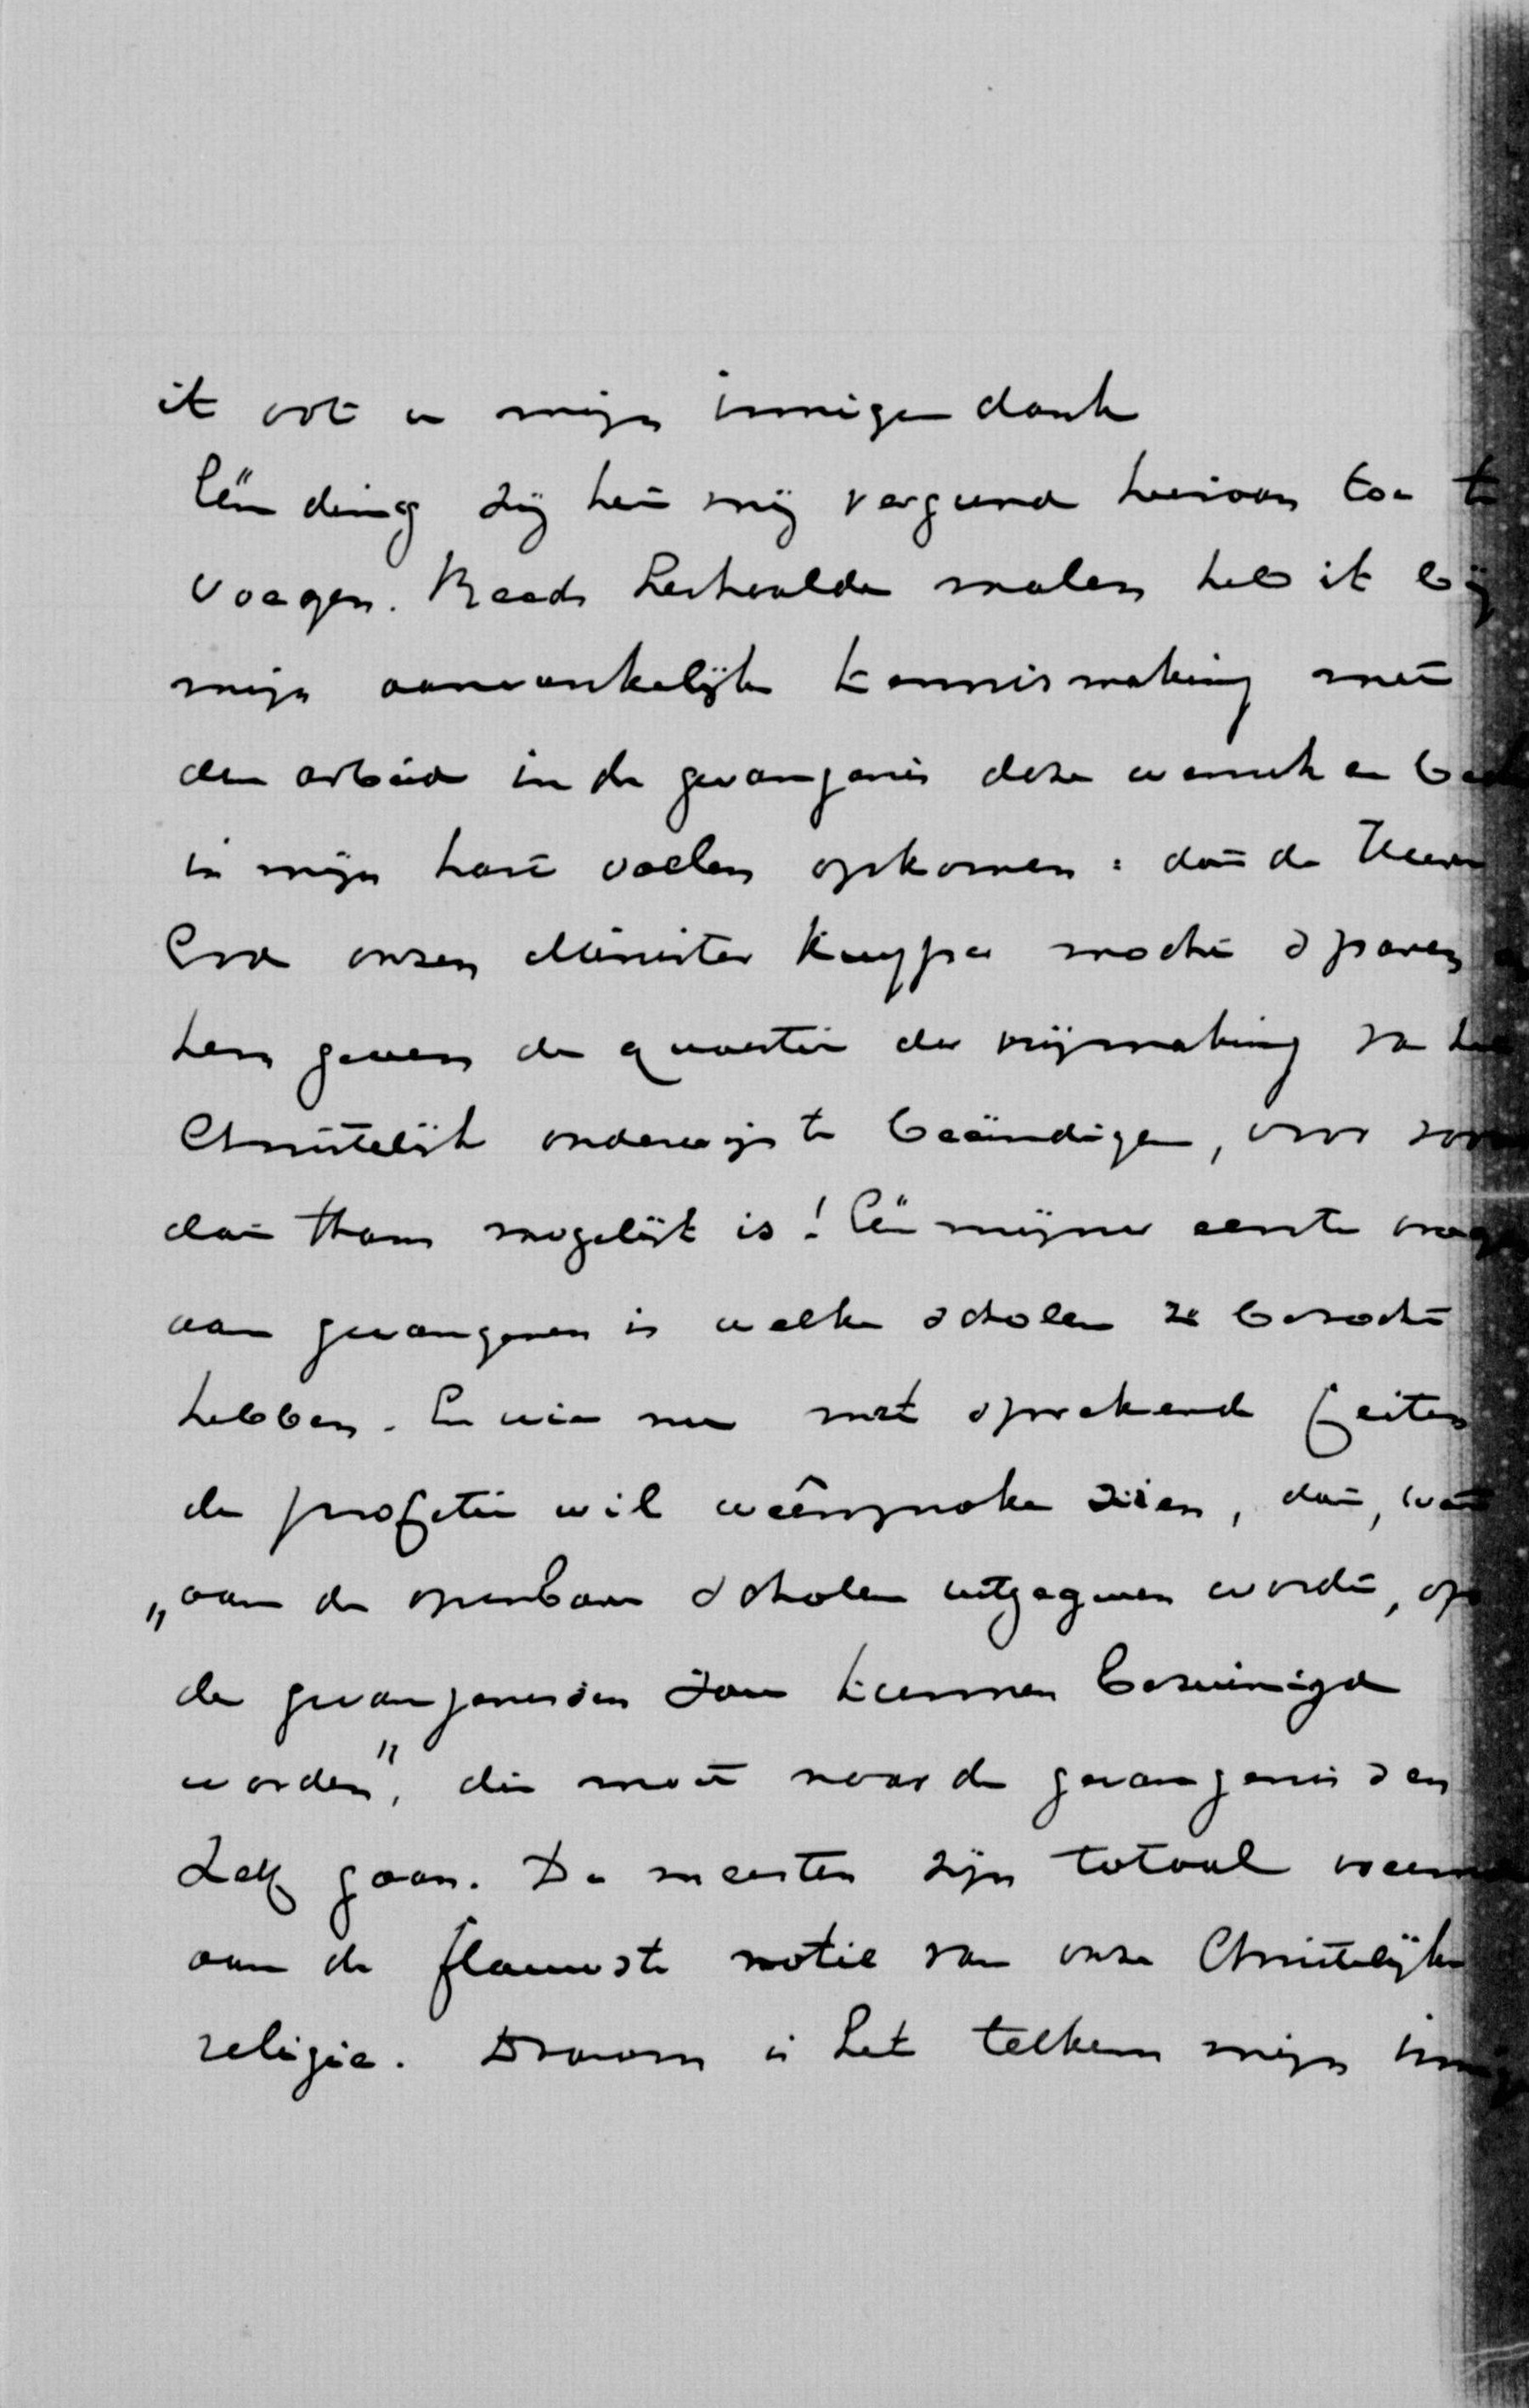 ik ook u mijn innigen dank
Eén ding zij het mij vergund hieraan toe te
voegen. Reeds herhaalde malen heb ik bij
mijn aanvankelijke kennismaking met
den arbeid in de gevangenis deze wensch en bede
in mijn hart voelen opkomen: dat de Heere
God onzen Minister Kuyper mocht sparen en
hem geven de quaestie der vrijmaking van het
Christelijk onderwijs te beëindigen, voor zoover
dat thans mogelijk is! Eén mijner eerste vragen
aan gevangenen is welke scholen ze bezocht
hebben. En wie nu met sprekende feiten
de profetie wil weêrsproken zien, dat, wat
„aan de openbare scholen uitgegeven wordt, op
de gevangenissen zou kunnen bezuinigd
worden”, die moet naar de gevangenissen
zelf gaan. De meesten zijn totaal vreemd
aan de flauwste notie van onze Christelijke
religie. Daarom is het telkens mijn innige